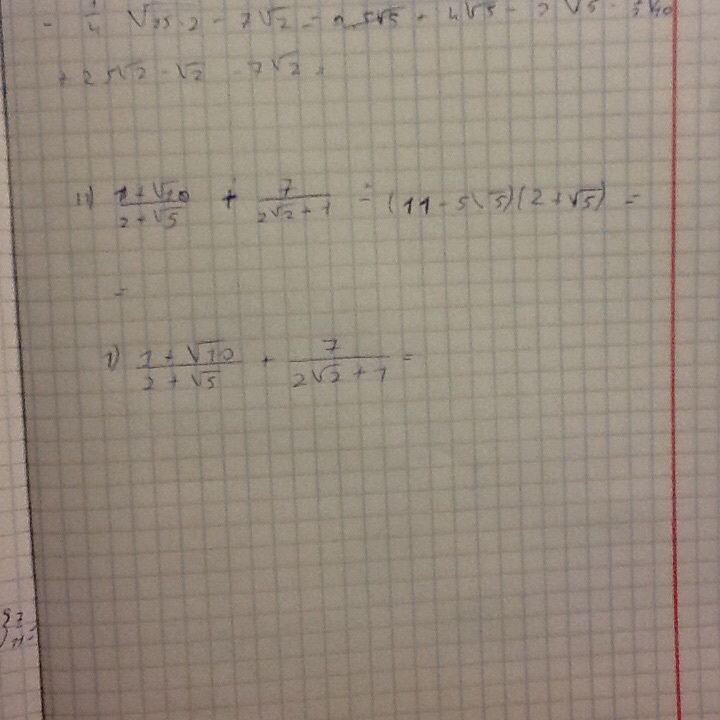 - 1/4 √25·2 - 7√2 - 2·5√5 + 4√5 - 2√5 · 5√10
+ 2 5√2 - √2 - 7√2 +
11) (1+√10)/(2+√5) + 7/(2√2+1) = (11-5√5)(2+√5) =
=
1) (1+√10)/(2+√5) + 7/(2√2+1) =